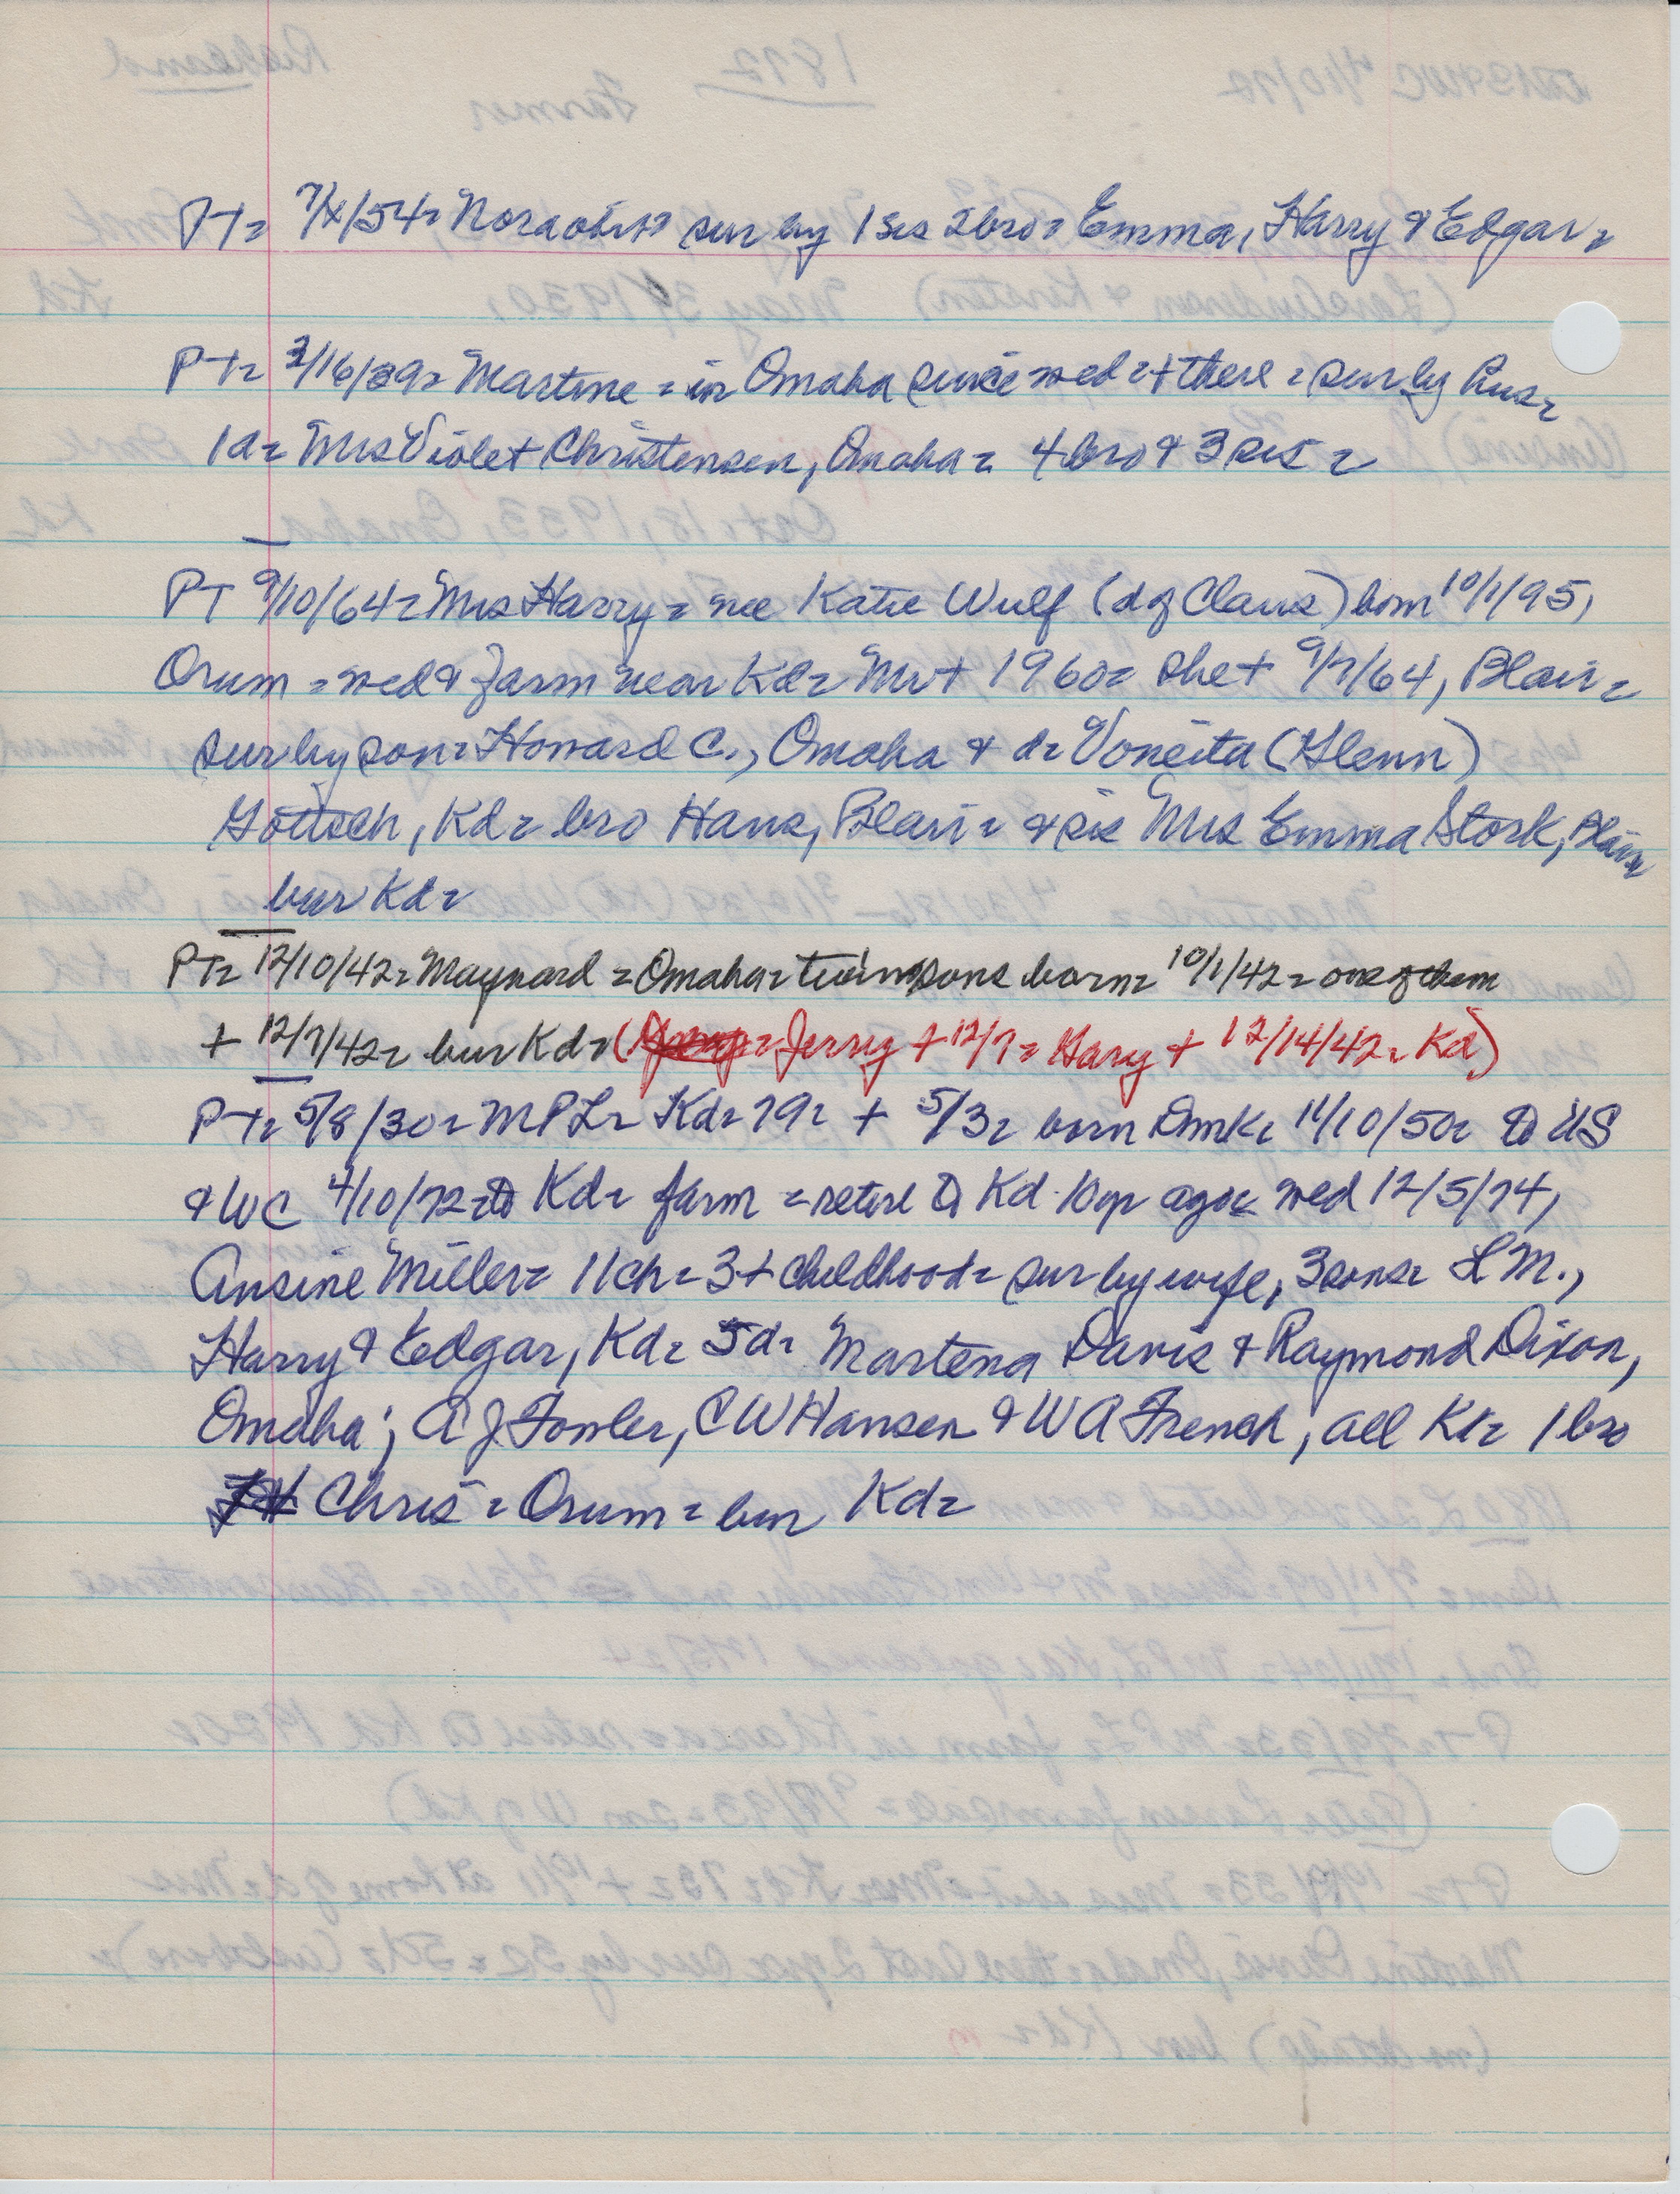 PT= 7/1/54= Nora obit= sur by 1 sis 2 bro= Emma, Harry & Edgar=
PT= 3/16/39= Martine = in Omaha since wed = + there = sur by hus=
1d= Mrs Violet Christensen, Omaha = 4 bro & 3 sis =
PT 9/10/64= Mrs Harry = nee Katie Wulf (d of Claus) born 10/1/95,
Orum = wed & farm near Kd= Mr + 1960= She + 9/7/64, Blair =
sur by son= Howard C., Omaha & d= Voneita (Glenn)
Gottsch, Kd= bro Hans, Blair = & sis Mrs Emma Stork, Blair
bur Kd=
PT= 12/10/42= Maynard = Omaha= twin sons born= 10/1/42= one of them
+ 12/7/42= bur Kd= (= Jerry + 12/7= Gary + 12/14/42= Kd)
PT= 5/8/30= MPL= Kd= 79= + 5/3= born Dmk= 11/10/50= to US
& WC 4/10/72= to Kd= farm = retire to Kd 10 yr ago= wed 12/5/74,
Ansine Miller= 11 ch= 3 + childhood= sur by wife, 3 sons= L M.,
Harry & Edgar, Kd= 5d= Martena Davis & Raymond Dixon,
Omaha; A J Fowler, C W Hansen & W A French, all Kd= 1 bro
Chris = Orum = bur Kd=